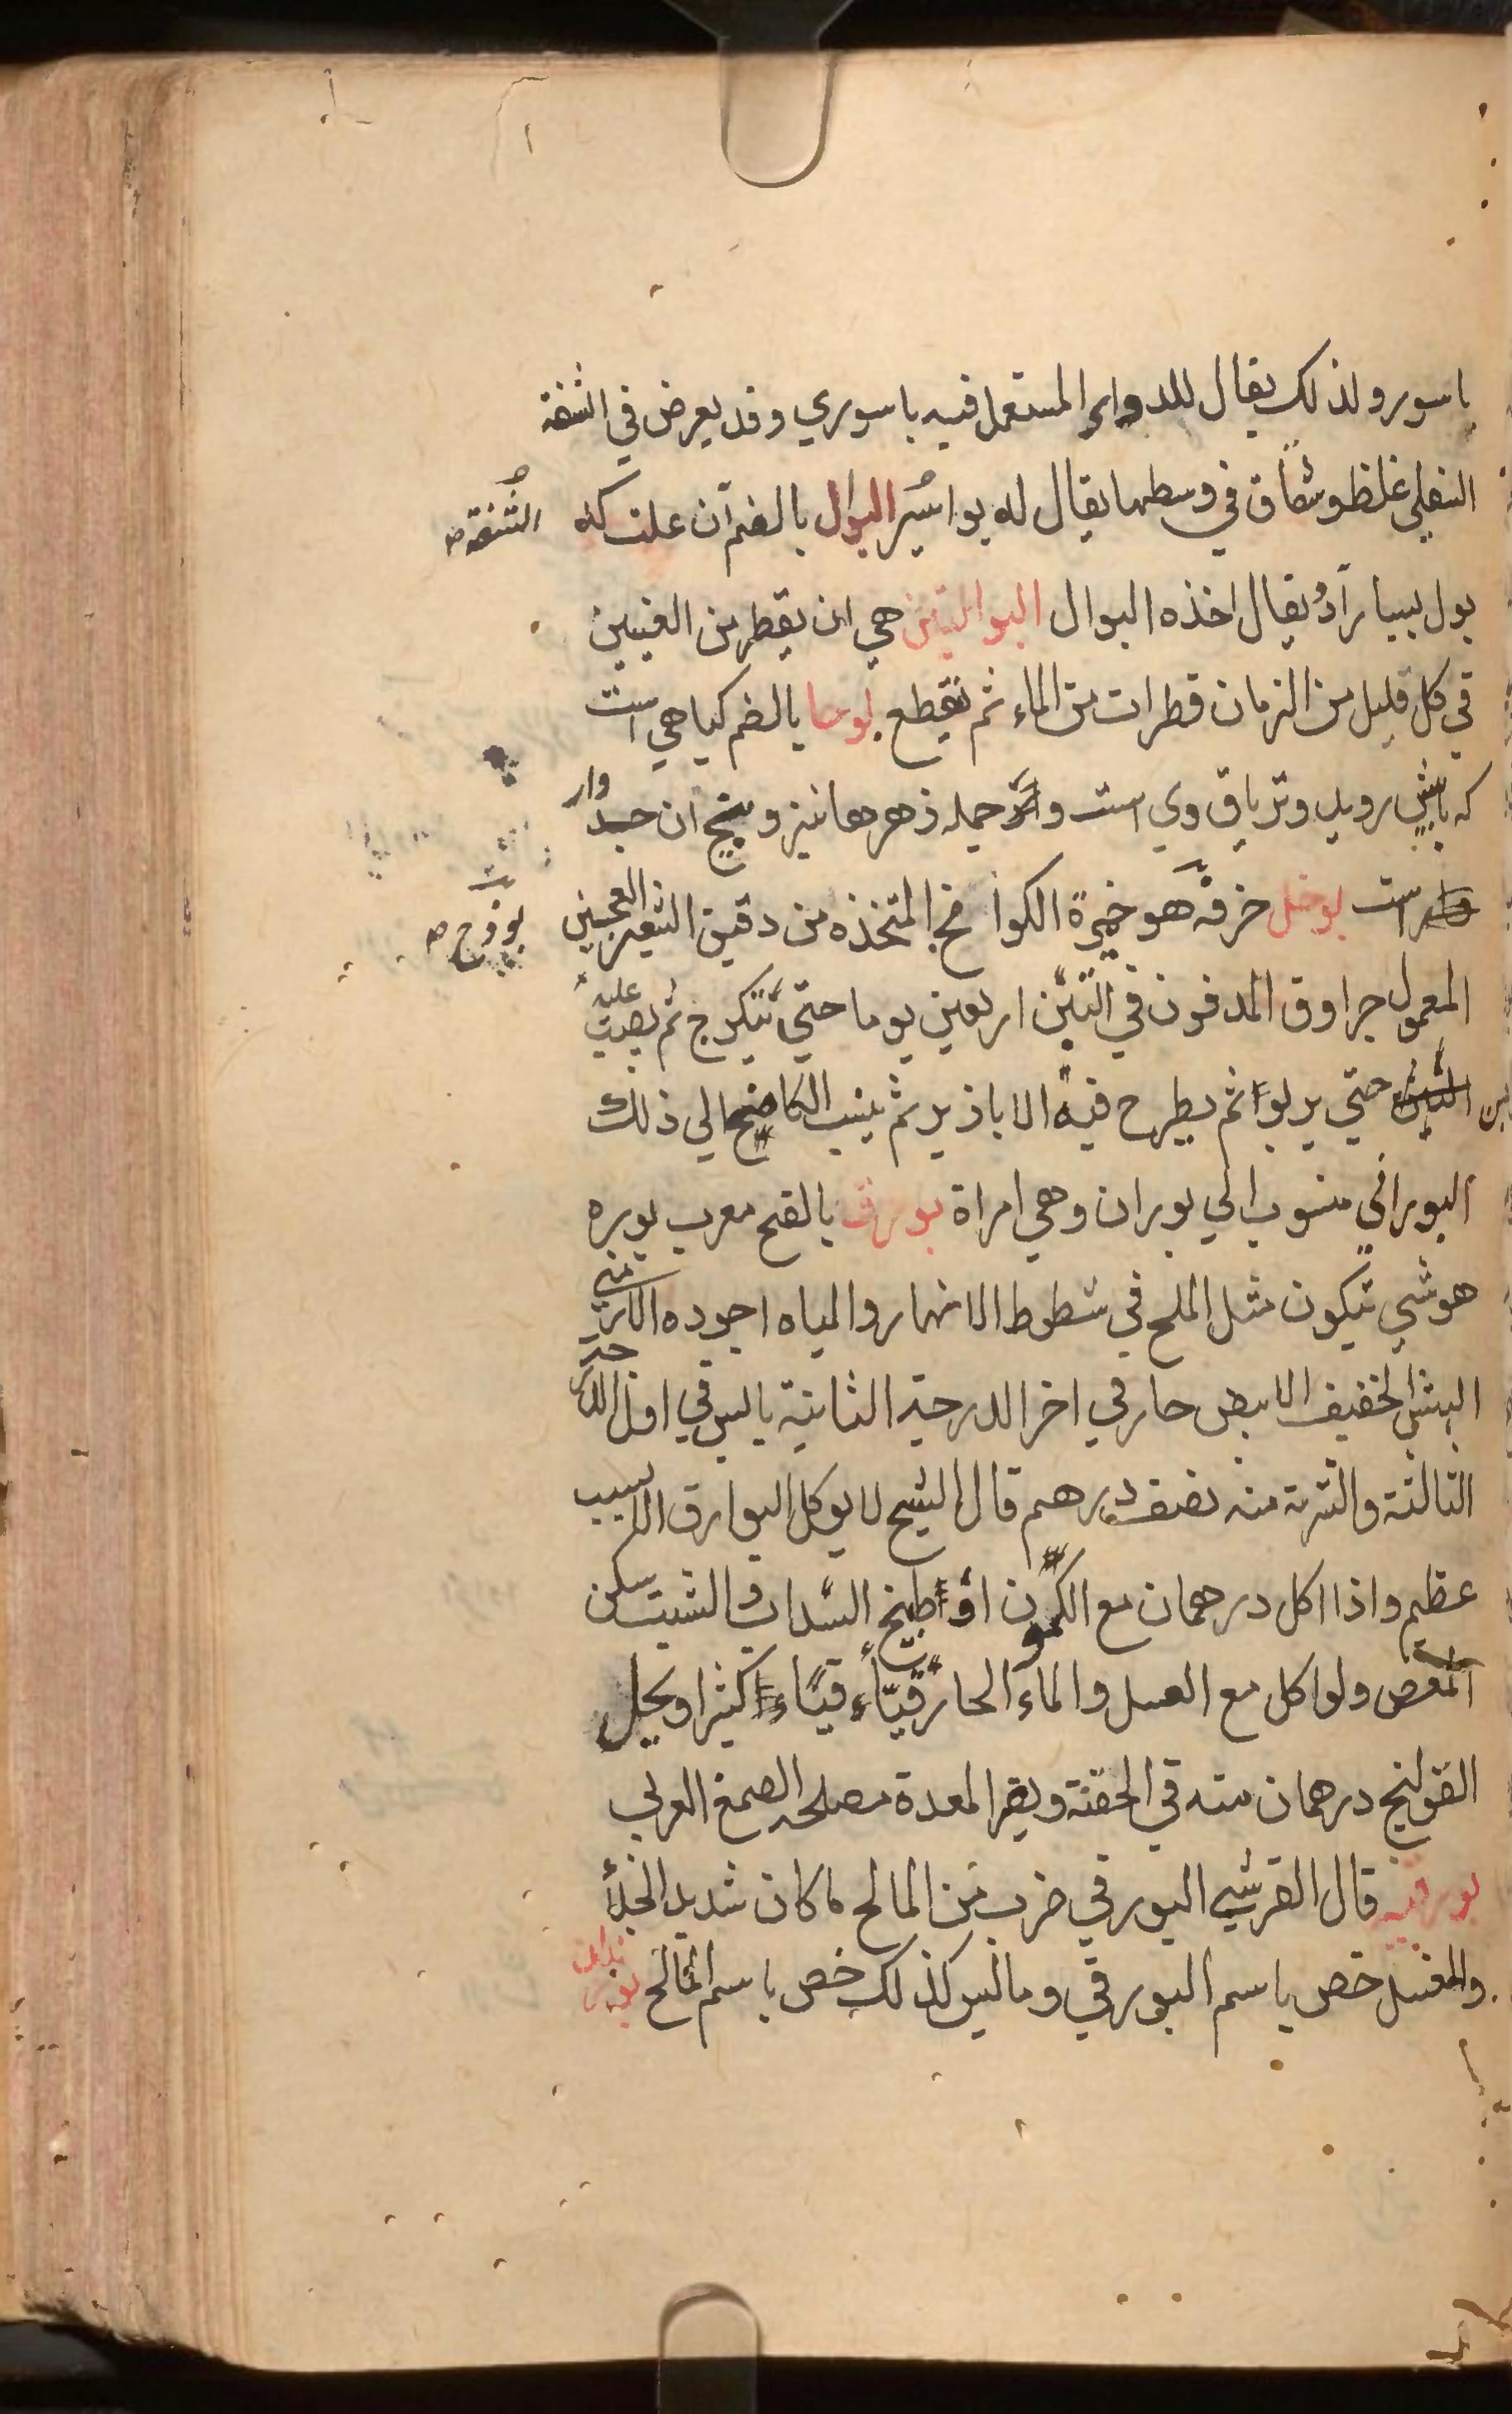 باسور ولذلك يقال للدواء المستعمل فيه باسوري وقد يعرض في الشفة
السفلي غلظ وشقاق في وسطها يقال له بواسير البوال بالضم آن علت كه
الشفة صح
بول بسيار آرد يقال اخذه البوال البوالتين هي ان يقطر من العينين
في كل قليل من الزمان قطرات من الماء ثم تقطع بوحا بالضم كياهي است
كه بابيش رويد وترياق وي است واز جمله زهرها نيز وبيخ آن جدوار
است بوخل خرفه هو خميرة الكوامخ المتخذه من دقيق الشعير العجين
بوزج صح
المعمول جراوق المدفون في التبن اربعين يوما حتي تتكرج ثم يصب عليه
لبن حتي يربوا ثم يطرح فيه الاباذير ثم ينسب الكامخ الي ذلك
البوراني منسوب الي بوران وهي امراة بورق بالفتح معرب بوره
هو شي تتكون مثل الملح في شطوط الانهار والمياه اجوده الارمني
الهش الخفيف الابيض حار في اخر الدرجة الثانية يابس في اول الدرجة
الثالثة والشربة منه نصف درهم قال الشيخ لا يوكل البوارق الا لسبب
عظيم واذا اكل درهمان مع الكمون او طبيخ السداب والشبت سكن
المغص ولو اكل مع العسل والماء الحار قيّأ قيئا كثيرا ويحلل
القولنج درهمان منه في الحقنة ويضر المعدة مصلحه الصمغ العربي
بورقيه قال القرشي البورقي ضرب من المالح ما كان شديد الجلأ
والغسل خص باسم البورقي وما ليس كذلك خص باسم المالح